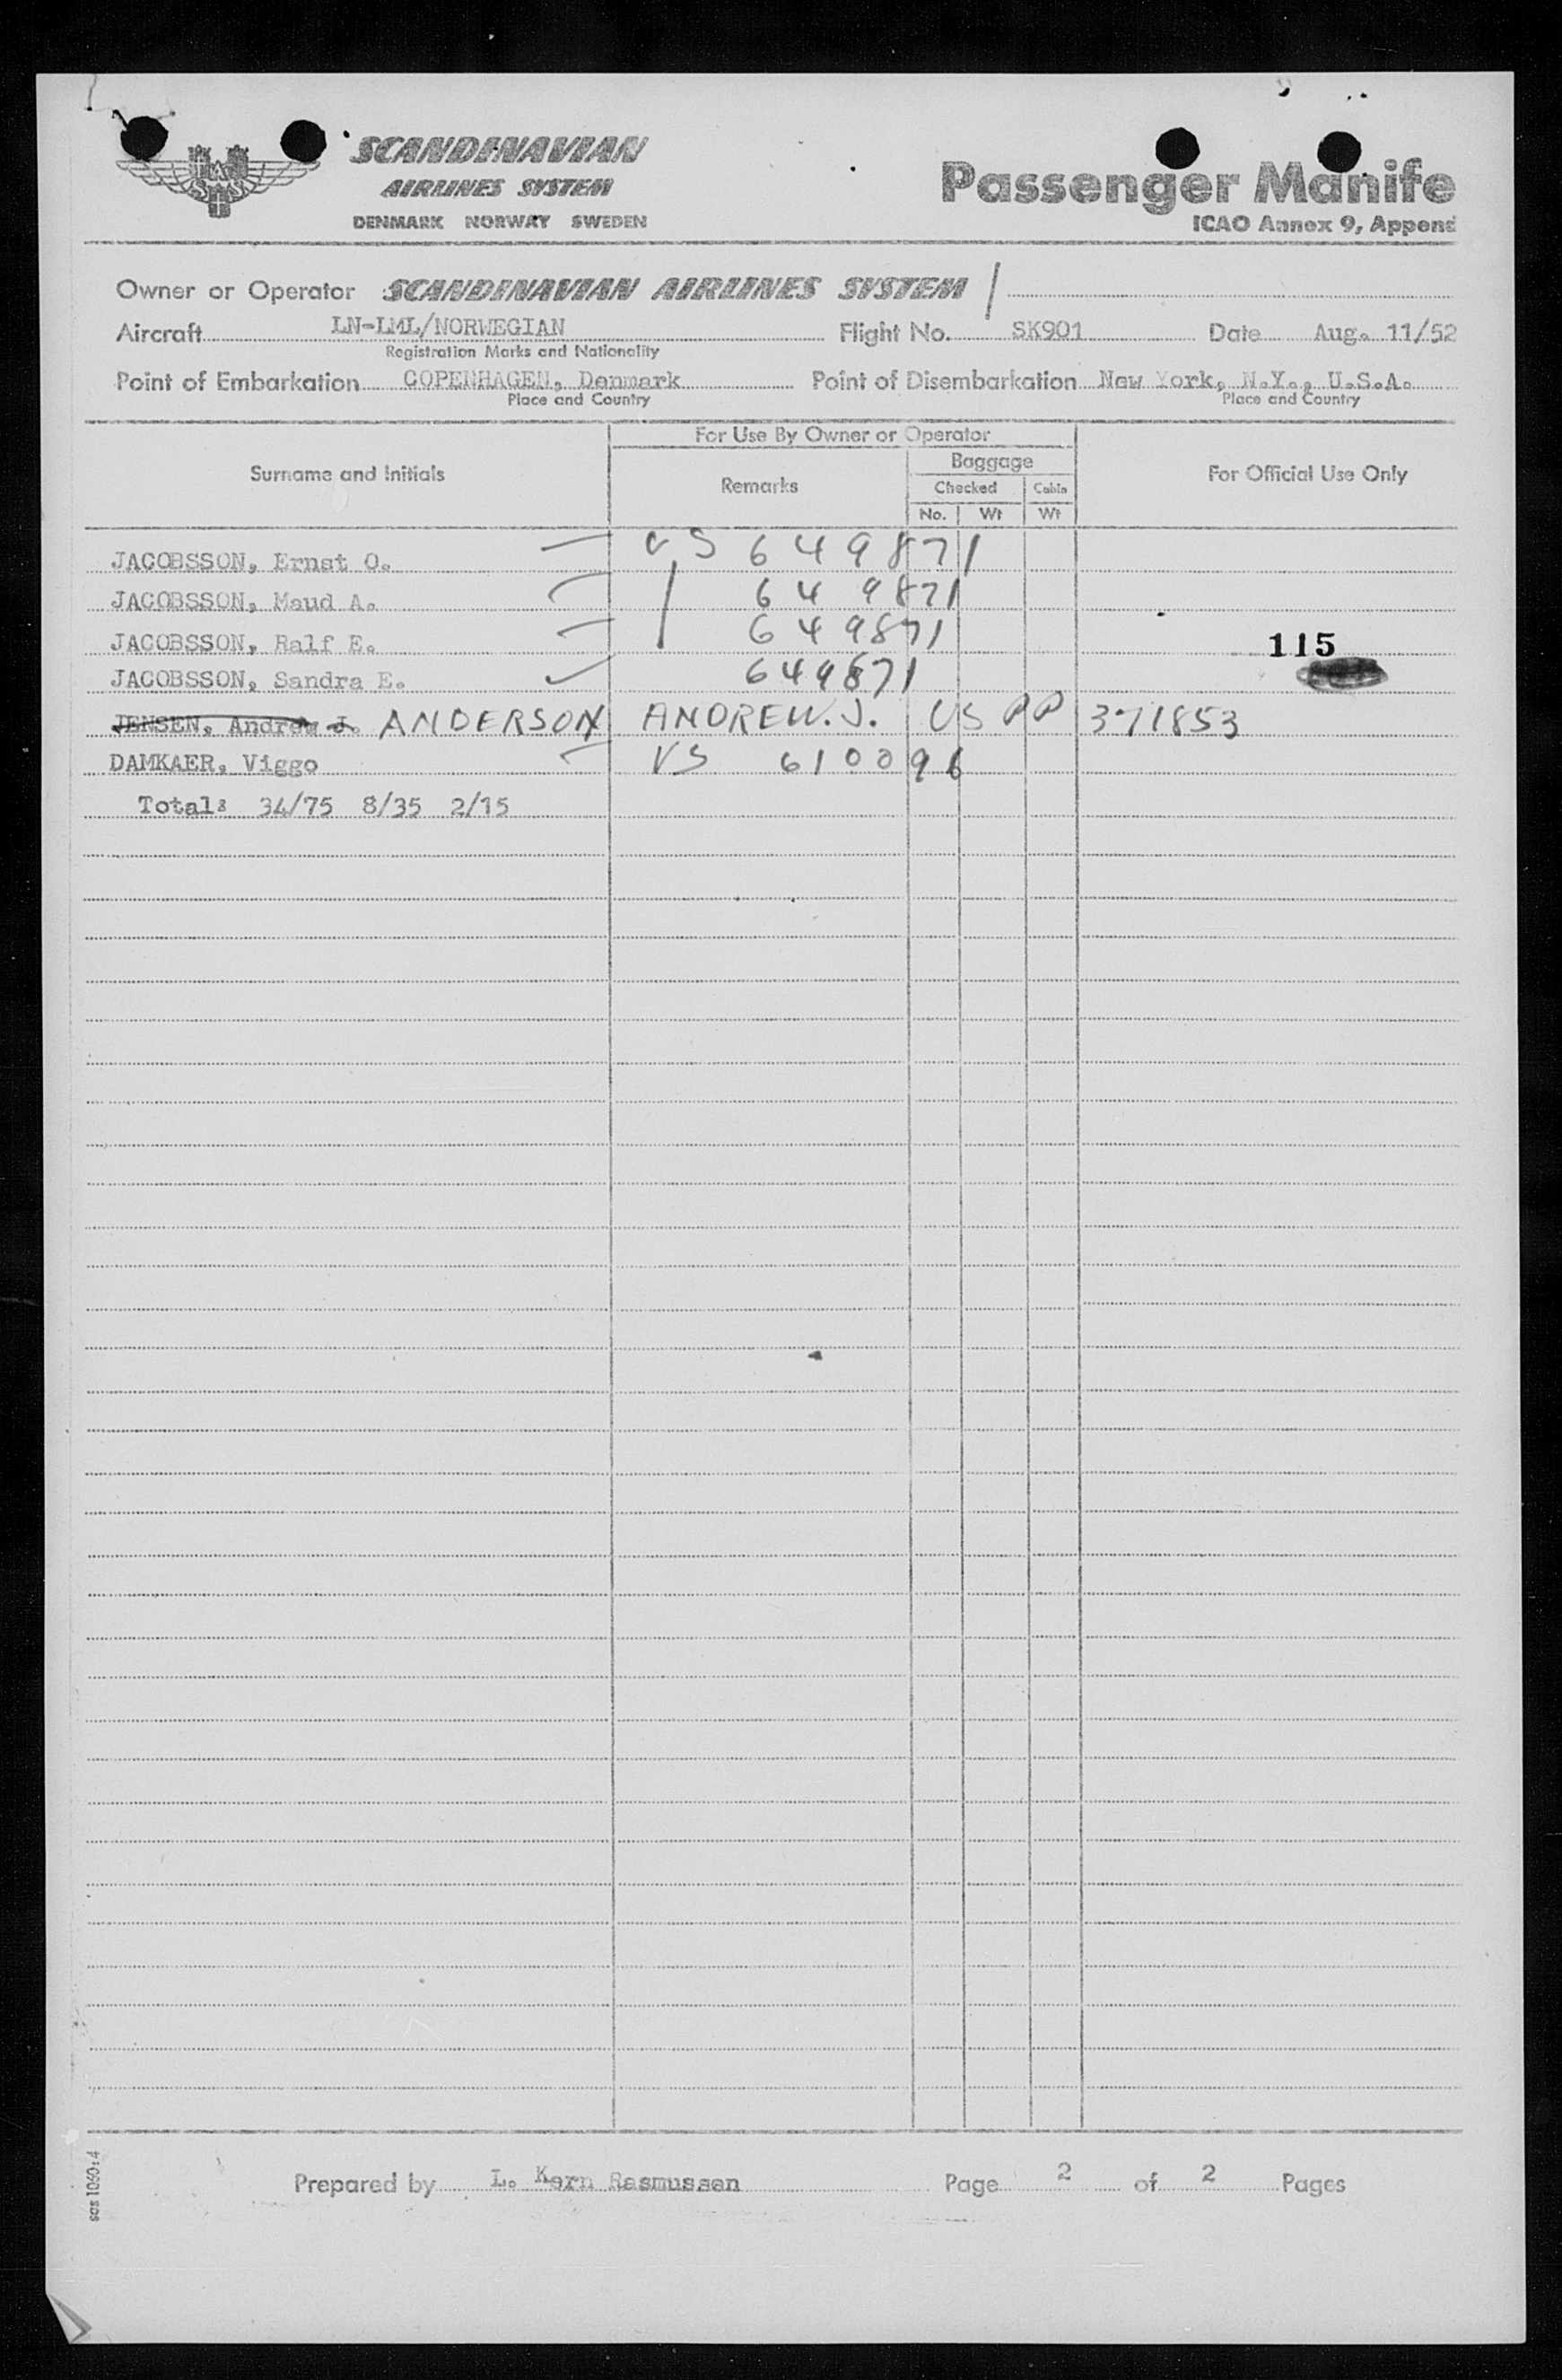 SCANDINAVIAN
AIRLINES SYSTEM
DENMARK NORWAY SWEDEN
Passenger Manife
ICAO Annex 9, Append
Owner or Operator SCANDINAVIAN AIRLINES SYSTEM
Aircraft LN-LML/NORWEGIAN Flight No. SK901 Date Aug. 11/52
Registration Marks and Nationality
Point of Embarkation COPENHAGEN, Denmark Point of Disembarkation New York, N.Y., U.S.A.
Place and Country Place and Country
For Use By Owner or Operator
Surname and Initials Remarks Baggage For Official Use Only
Checked Cabin
No. Wt Wt
JACOBSSON, Ernst O. VS 649871
JACOBSSON, Maud A. 649871
JACOBSSON, Ralf E. 649871
115
JACOBSSON, Sandra E. 649871
JENSEN, Andrew J. ANDERSON ANDREW. J. US PP 371853
DAMKAER, Viggo VS 610096
Total: 34/75 8/35 2/15
Prepared by L. Kern Rasmussen Page 2 of 2 Pages
sas 1060:4